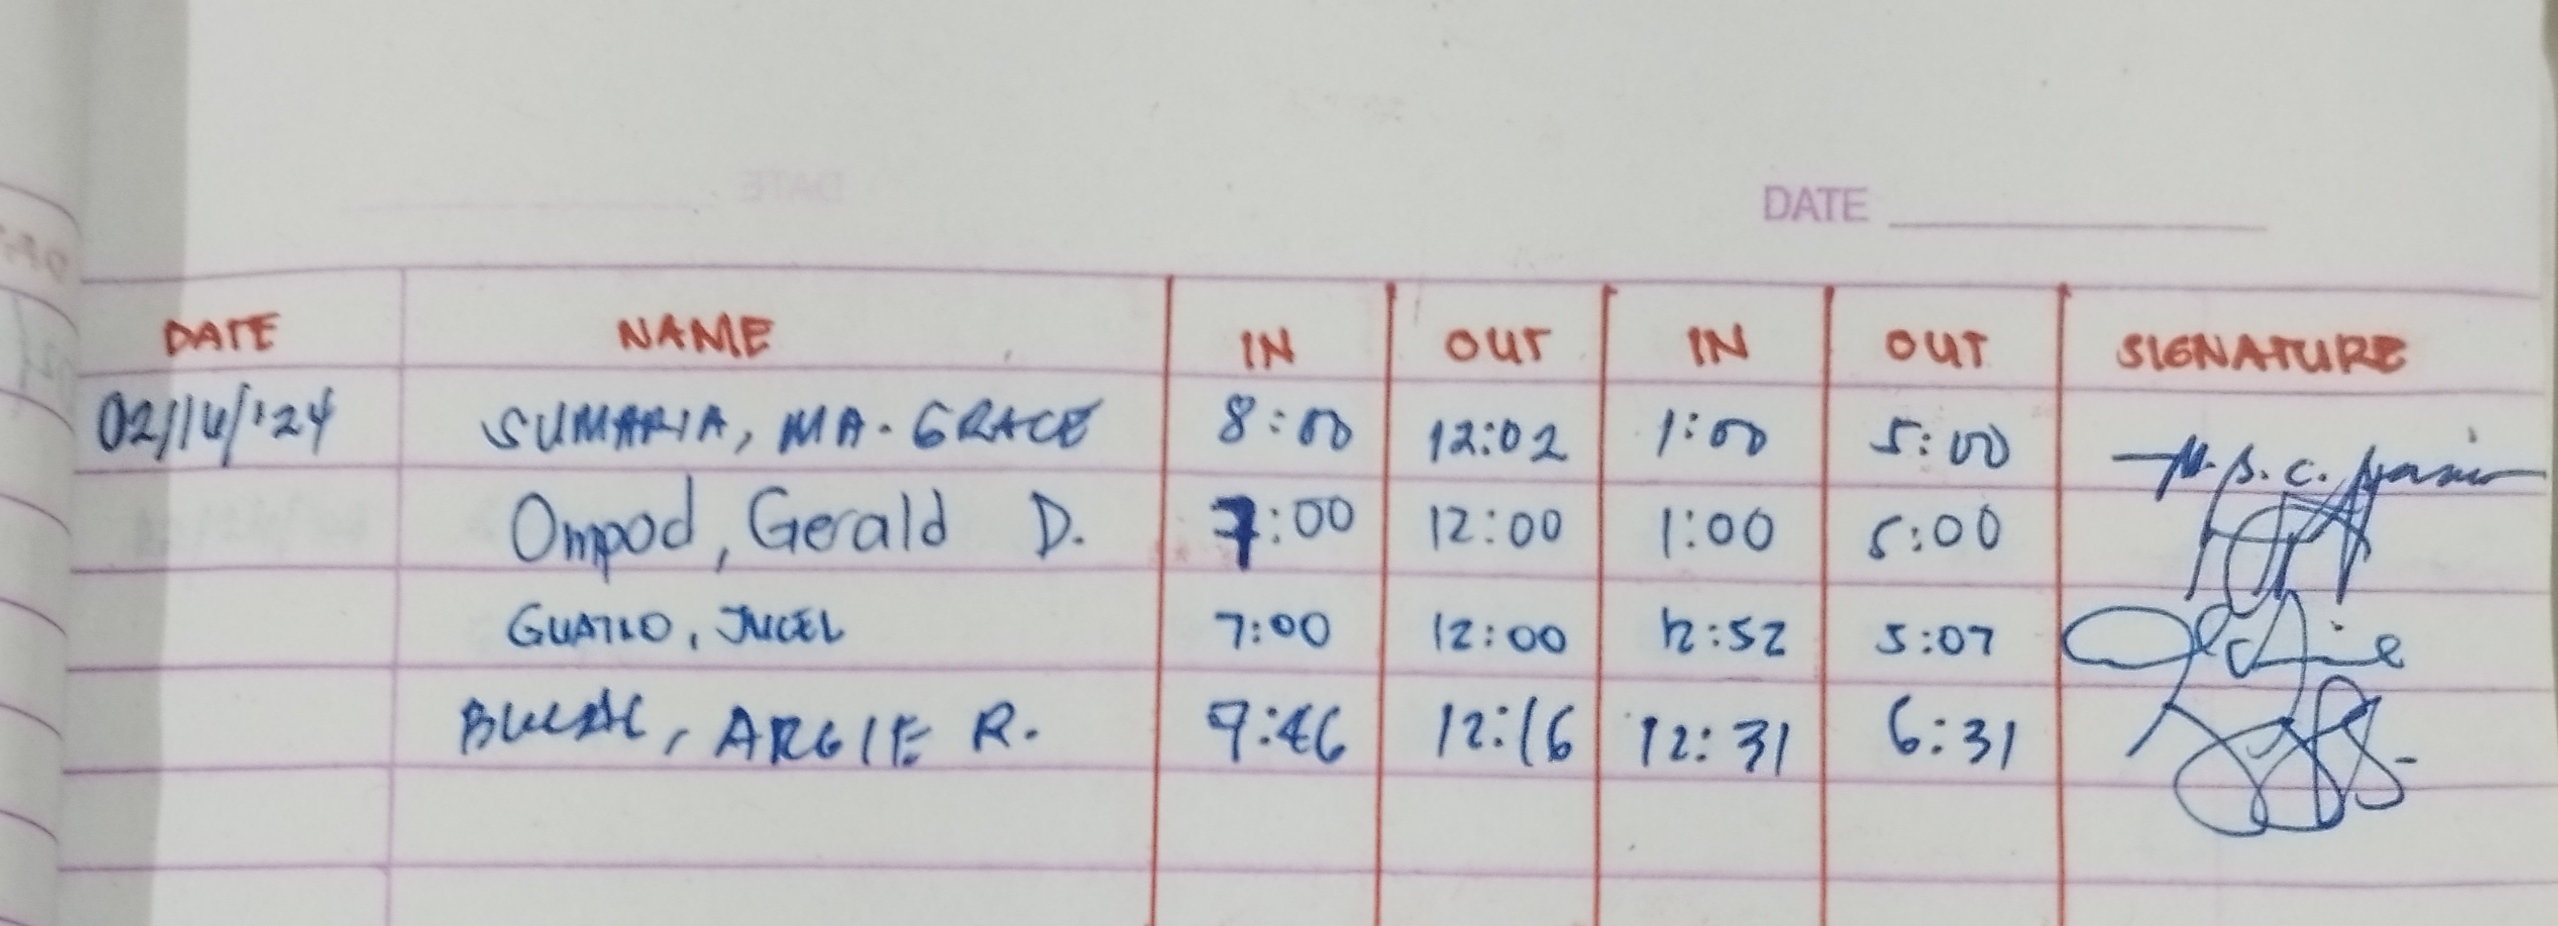 DATE
DATE NAME IN OUT IN OUT SIGNATURE
02/14/'24 SUMARIA, MA. GRACE 8:00 12:02 1:00 5:00
Ompod, Gerald D. 7:00 12:00 1:00 5:00
GUATLO, JUCEL 7:00 12:00 12:52 5:07
ARGIE R. 9:46 12:16 12:31 6:31